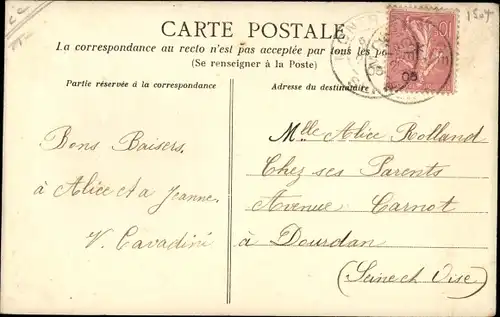 1504
CARTE POSTALE
La correspondance au recto n'est pas acceptée par tous les
(Se renseigner à la Poste)
Partie réservée à la correspondance
Adresse du destinataire
Bons Baisers.
à Alice et a Jeanne.
V. Cavadini
Mlle Alice Rolland
Chez ses Parents
Avenue Carnot
à Dourdan
(Seine et Oise)
10
05